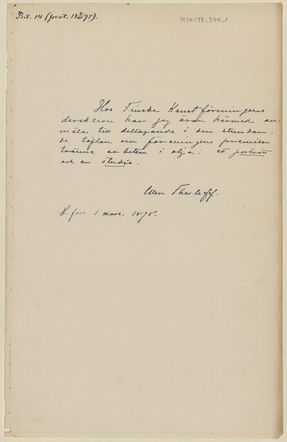 Bil. 14 (prot. 18 3/3 95).
Hos Finska Konstföreningens
direktion har jag äran härmed an-
mäla till deltagande i den stundan-
de täflan om föreningens premier
tvänne arbeten i olja: ett porträtt
och en studie.
Ellen Thesleff.
H.fors 1 mars. 1895.